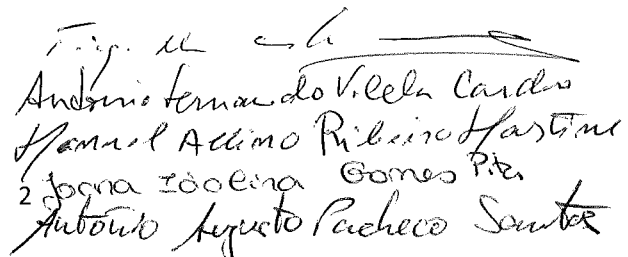 António Fernando Vilela Cardoso
Manuel Albino Ribeiro Martins
2 Joana Idolina Gomes Pita
António Augusto Pacheco Santos